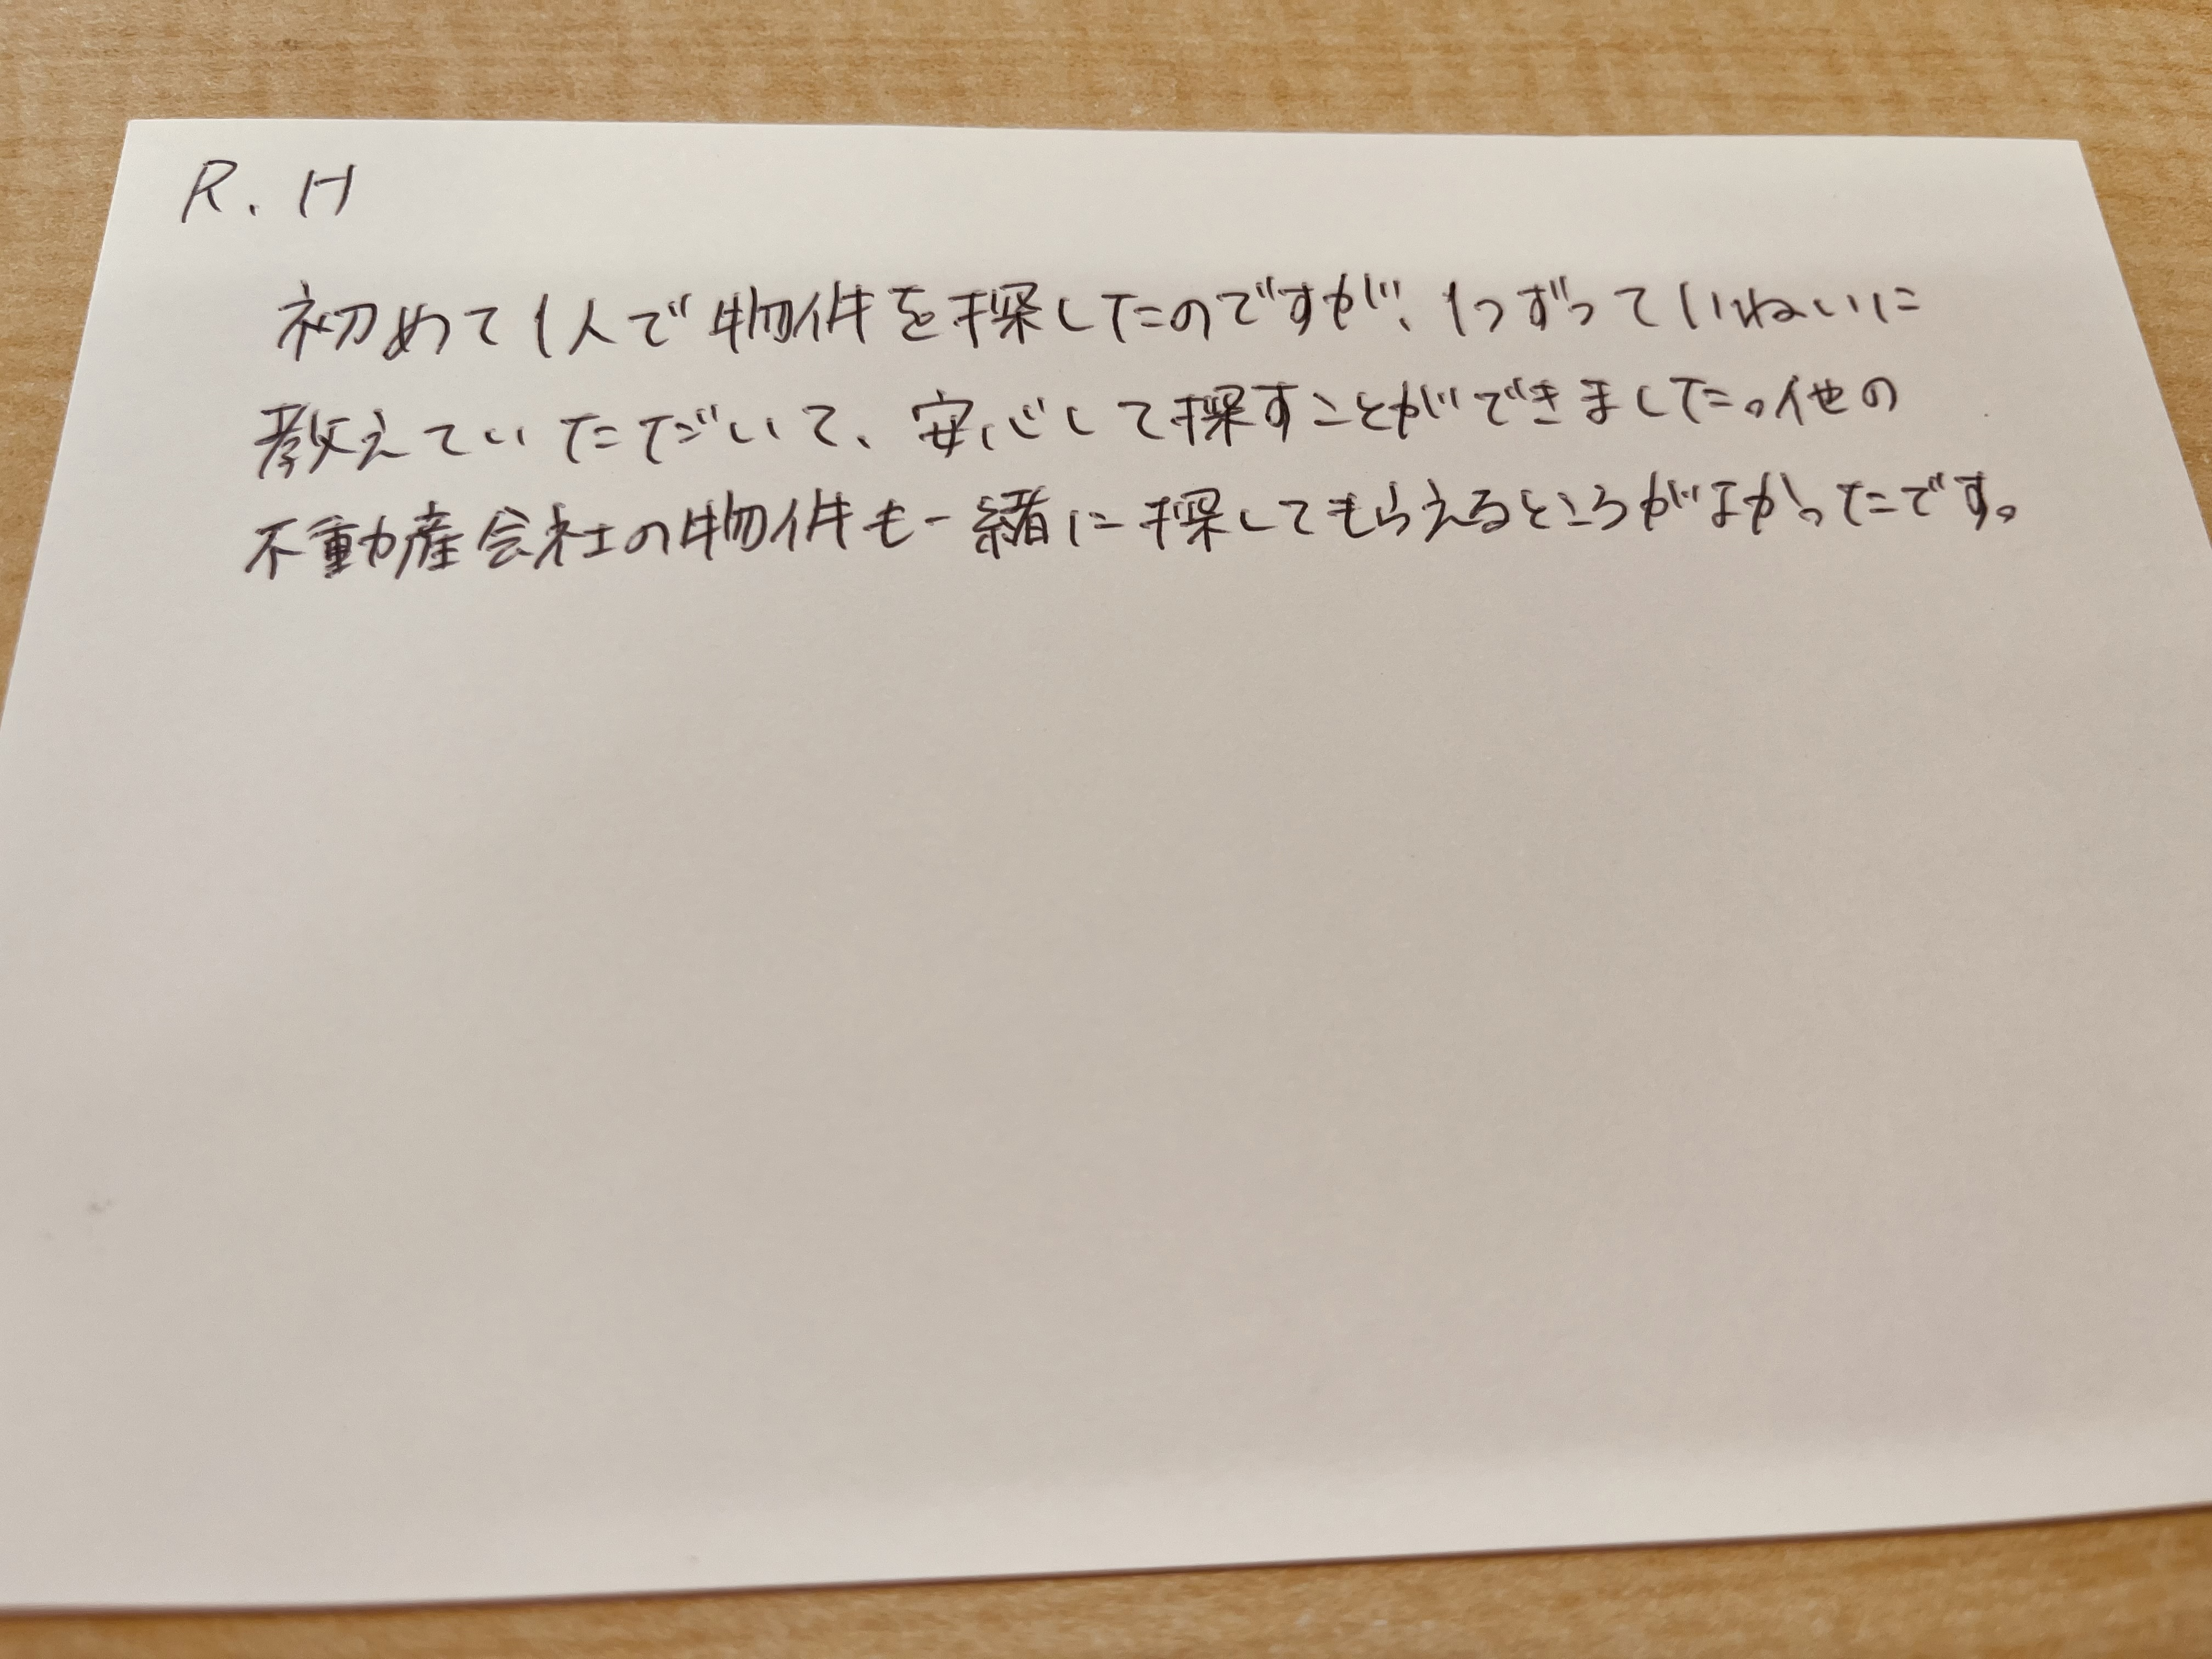 R.H
初めて1人で物件を探したのですが、1つずつていねいに
教えていただいて、安心して探すことができました。他の
不動産会社の物件も一緒に探してもらえるところがよかったです。